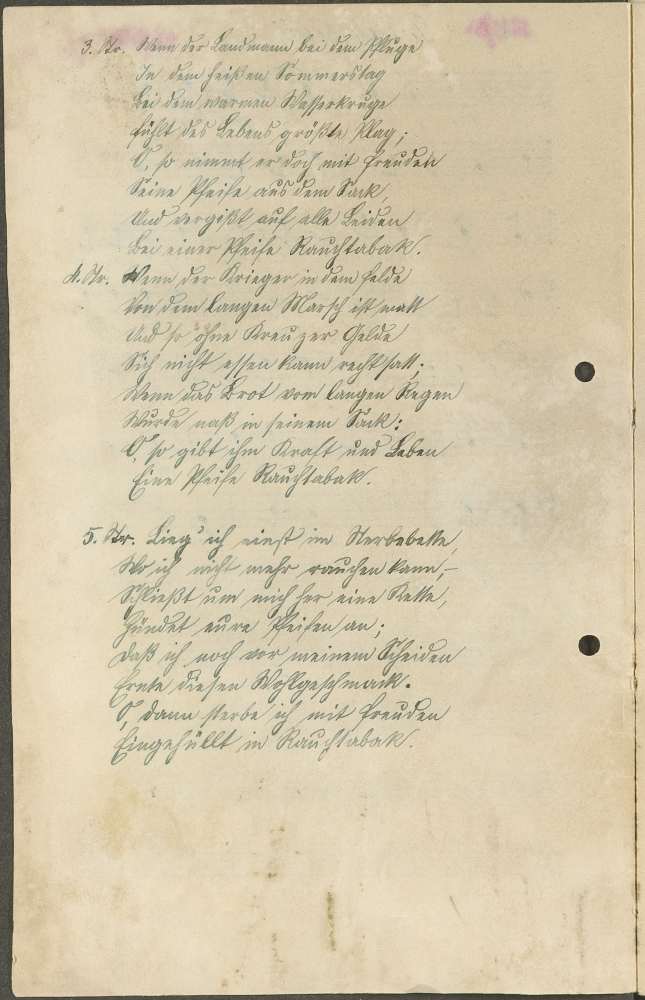 3. Str. Wenn der Landmann bei dem Pfluge
In dem heißen Sommerstag
Bei dem warmen Wasserkruge
Fühlt des Lebens größte Plag;
O, so nimmt er doch mit Freuden
Seine Pfeife aus dem Sack,
Und vergißt auf alle Leiden
Bei einer Pfeife Rauchtabak.
4. Str. Wenn der Krieger in dem Felde
Von dem langen Marsch ist matt
Und so ohne Kreuzer Gelde
Sich nicht essen kann recht satt;
Wenn das Brot vom langen Regen
Wurde naß in seinem Sack:
O, so gibt ihm Kraft und Leben
Eine Pfeife Rauchtabak.
5. Str. Lieg' ich einst im Sterbebette,
Wo ich nicht mehr rauchen kann,–
Schließt um mich her eine Kette,
Zündet eure Pfeifen an;
Daß ich noch vor meinem Scheiden
Ernte diesen Wohlgeschmack.
O, dann sterbe ich mit Freuden
Eingehüllt in Rauchtabak.